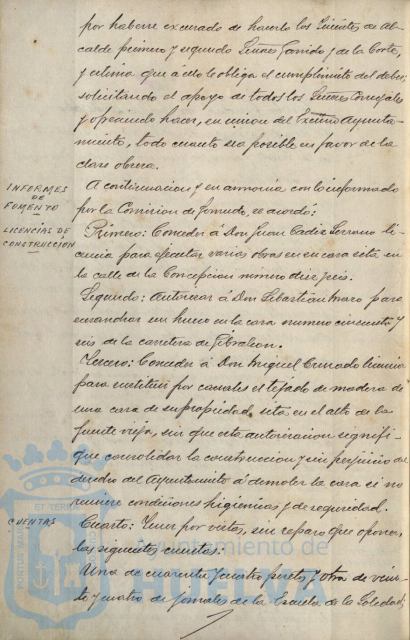 por haberse excusado de hacerlo los Tenientes de Al-
calde primero y segundo Señores Garrido y de la Corte,
y estima que á ello le obliga el cumplimiento del deber
solicitando el apoyo de todos los Señores Concejales
y ofreciendo hacer, en union del Excmo Ayunta-
miento, todo cuanto sea posible en favor de la
clase obrera.
INFORMES
DE
FOMENTO
A continuacion y en armonia con lo informado
por la Comision de Fomento, se acordó:
LICENCIAS DE
CONSTRUCCION
Primero: Conceder á Don Juan Cadiz Serrano li-
cencia para ejecutar varias obras en su casa sita en
la calle de la Concepcion número diez y seis.
Segundo: Autorizar á Don Sebastian Mazo para
ensanchar un hueco en la casa número cincuenta y
seis de la carretera de Gibraleon.
Tercero: Conceder á Don Miguel Cruzado licencia
para sustituir por canales el tejado de madera de
una casa de su propiedad, sita en el alto de la
fuente vieja, sin que esta autorizacion signifi-
que consolidar la construccion y sin perjuicio del
derecho del Ayuntamiento á demoler la casa si no
reune condiciones higienicas y de seguridad.
CUENTAS
Cuarto: Tener por vistas, sin reparo que oponer,
las siguientes cuentas:
Una de cuarenta y cuatro pesetas y otra de vein-
te y cuatro de jornales de la Escuela de la Soledad;
Ayuntamiento de
HUELVA